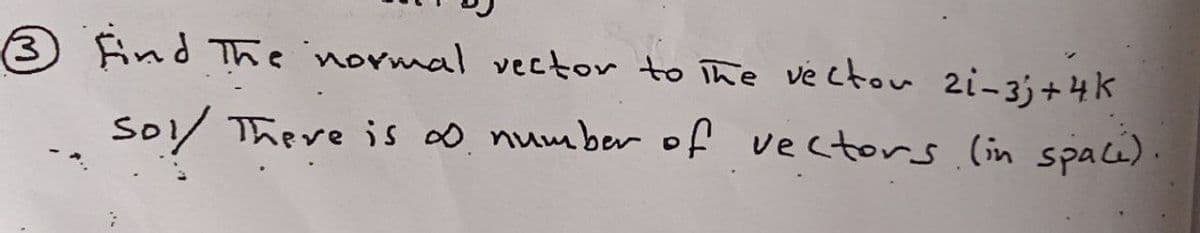 ③ Find The normal vector to The vector 2i-3j+4k
sol/ There is ∞ number of vectors (in space).